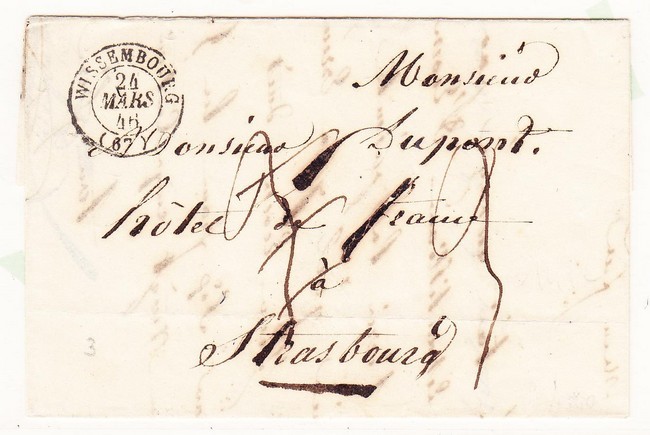 WISSEMBOURG
24
MARS
46
(67)
Monsieur
Monsieur Dupont.
hôtel de france
à
Strasbourg
3